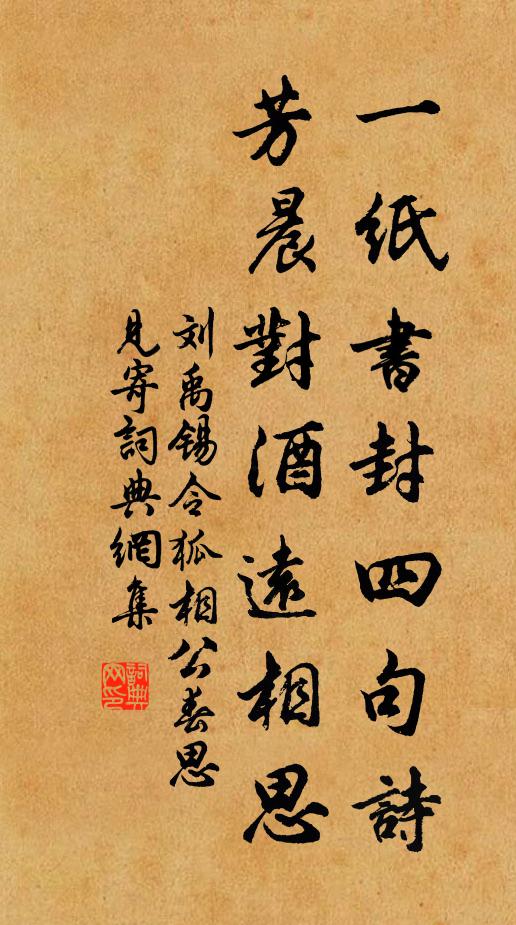 一紙書封四句詩
芳晨對酒遠相思
刘禹锡令狐相公春思
見寄詞典網集
詞典网印